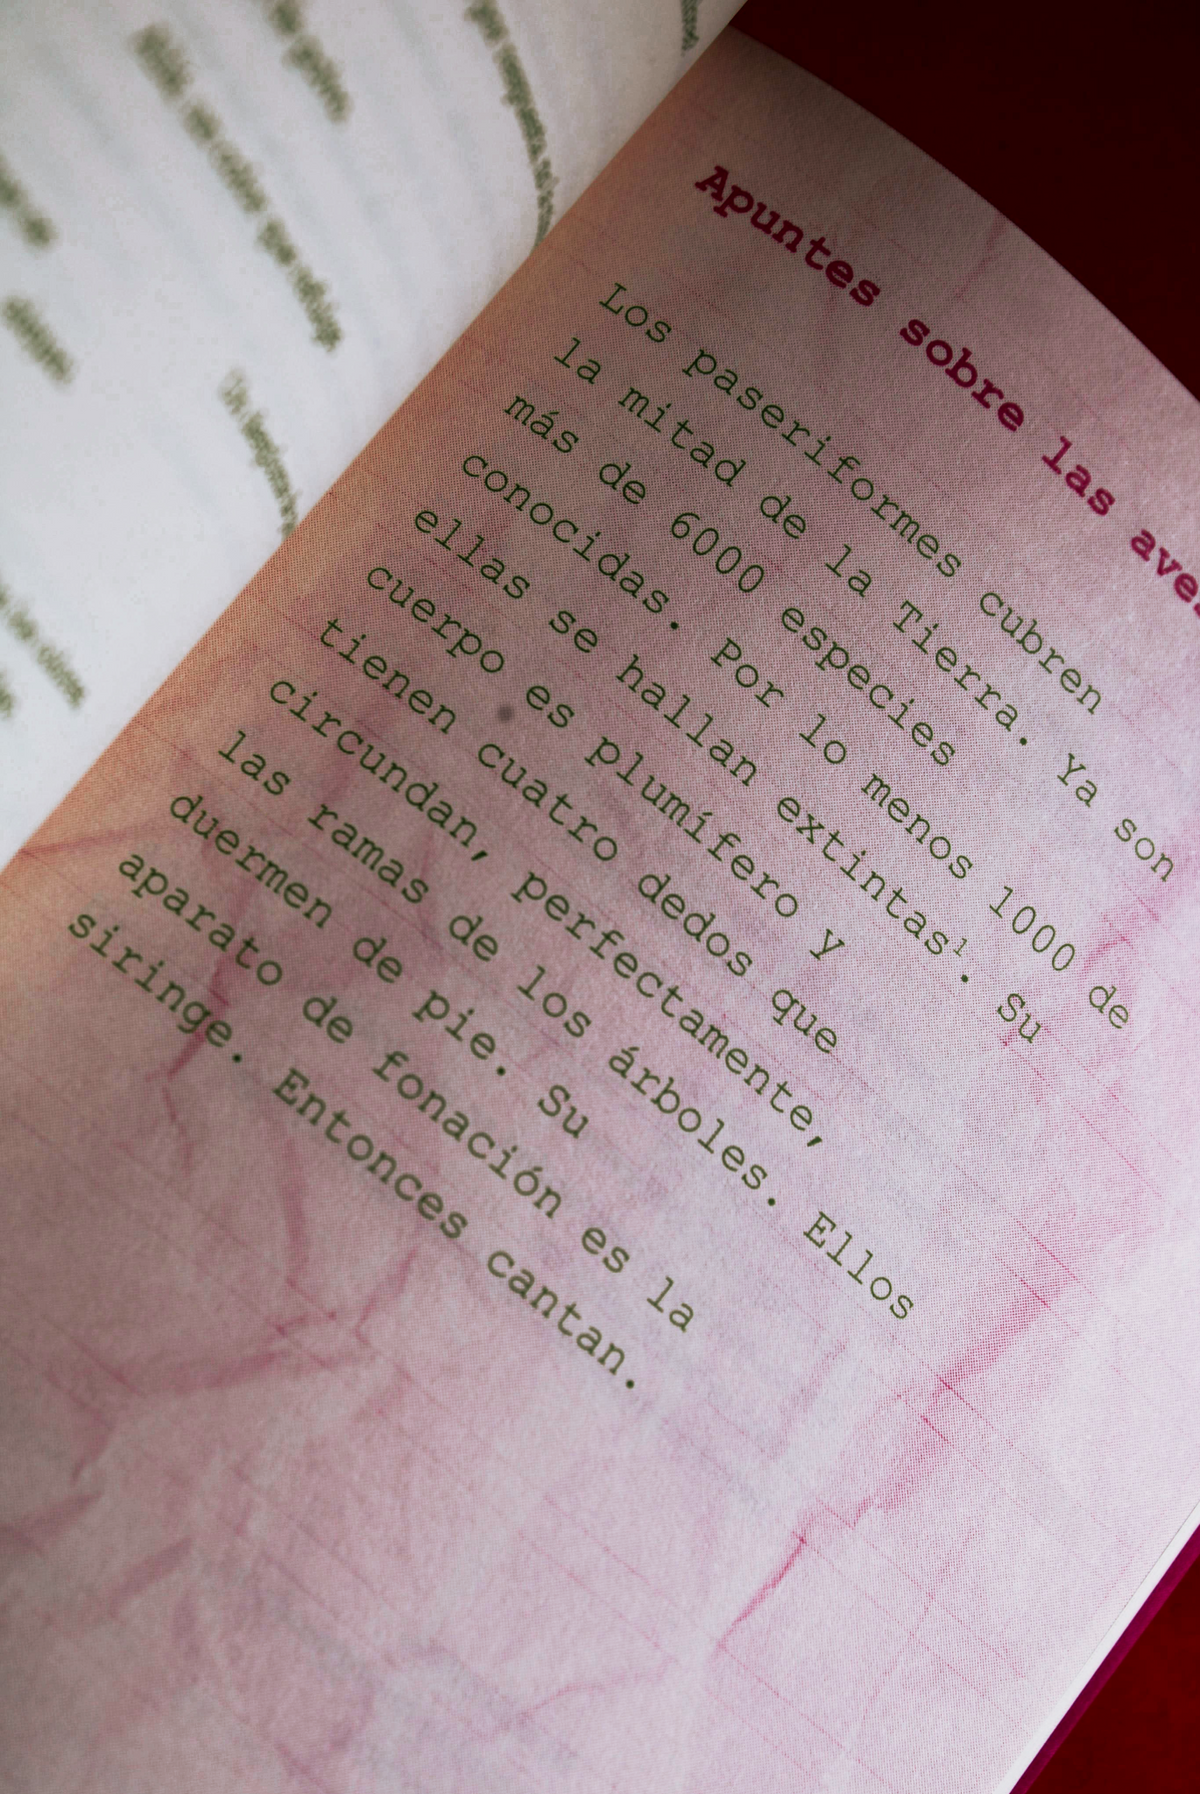 Apuntes sobre las aves
Los paseriformes cubren
la mitad de la Tierra. Ya son
más de 6000 especies
conocidas. Por lo menos 1000 de
ellas se hallan extintas¹. Su
cuerpo es plumífero y
tienen cuatro dedos que
circundan, perfectamente,
las ramas de los árboles. Ellos
duermen de pie. Su
aparato de fonación es la
siringe. Entonces cantan.